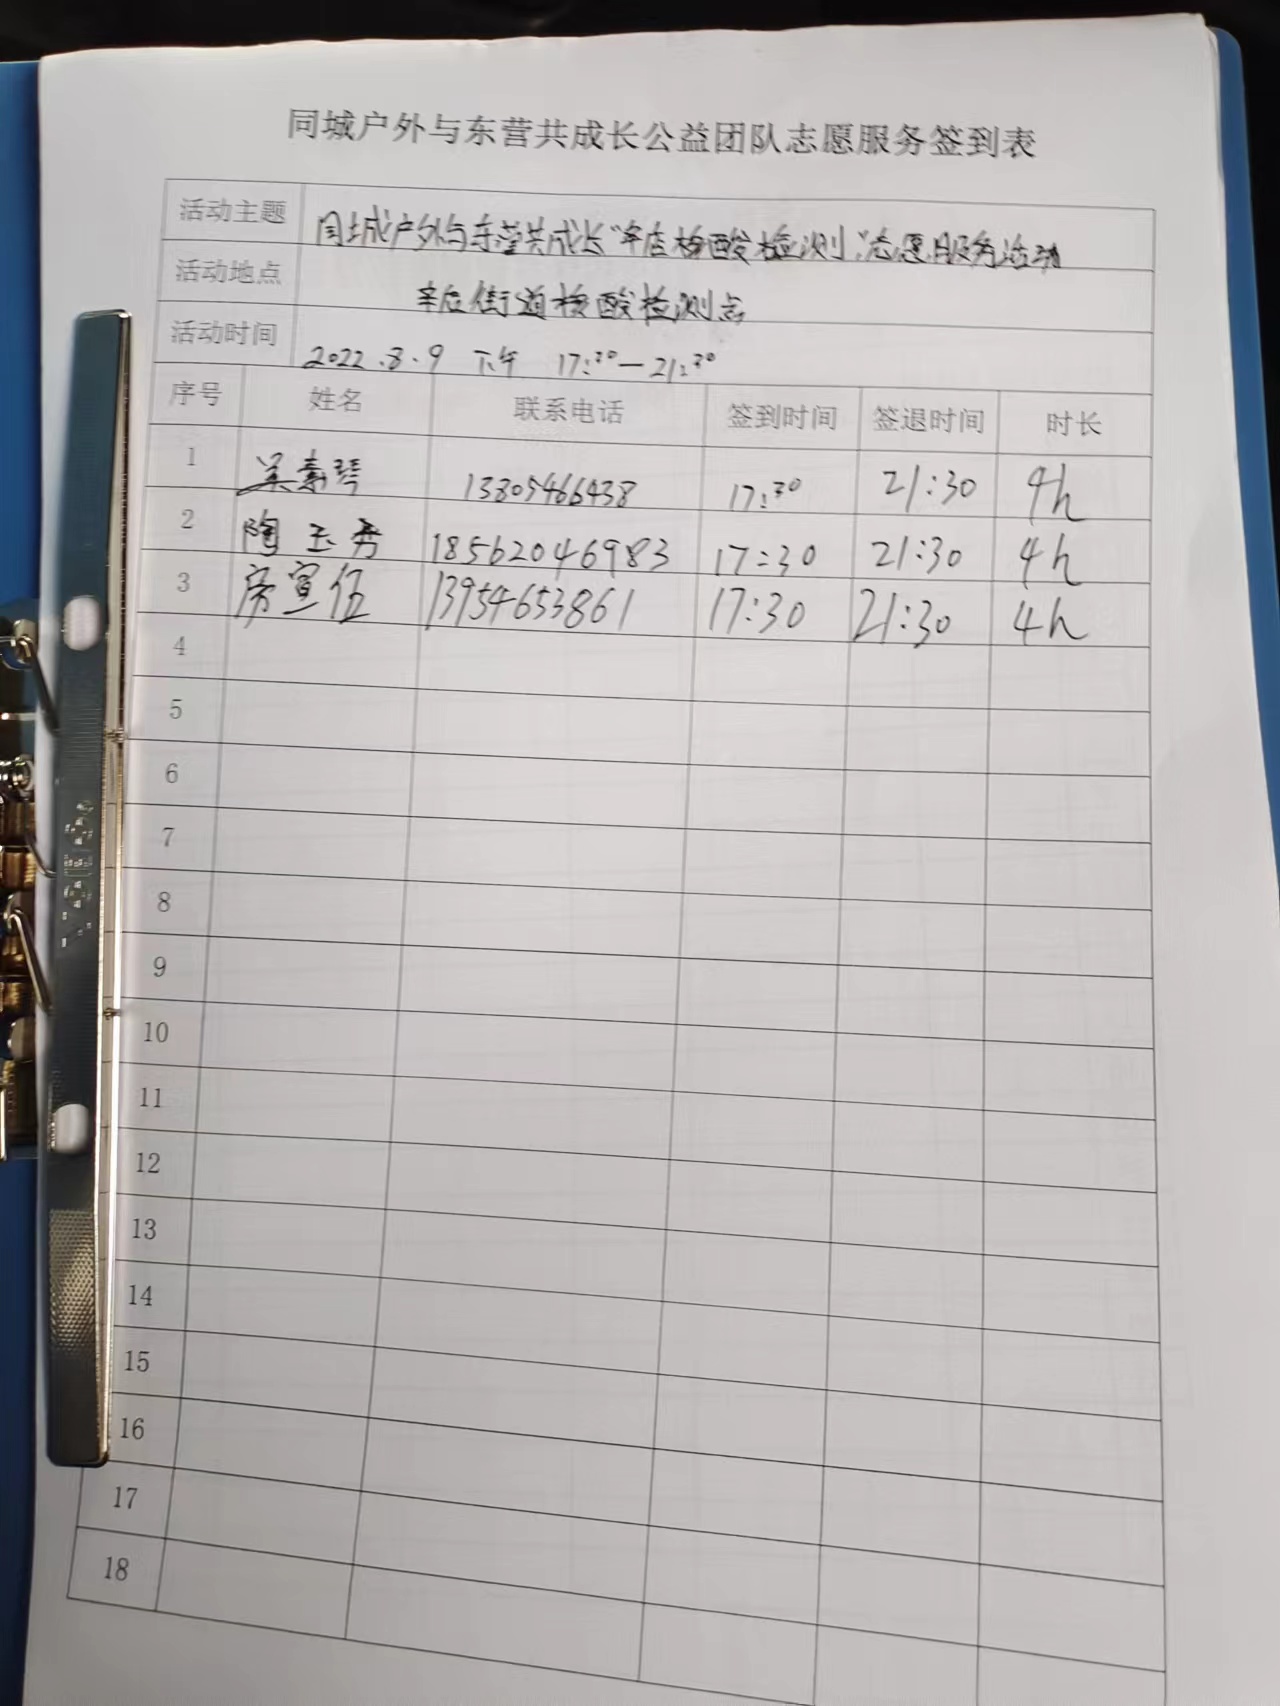 同城户外与东营共成长公益团队志愿服务签到表
活动主题 同城户外与东营共成长“辛店核酸检测”志愿服务活动
活动地点 辛店街道核酸检测点
活动时间 2022.8.9 下午 17:30—21:30
序号 姓名 联系电话 签到时间 签退时间 时长
1 素琴 13805466438 17:30 21:30 4h
2 陶玉秀 18562046983 17:30 21:30 4h
3 房宣伍 13954653861 17:30 21:30 4h
4
5
6
7
8
9
10
11
12
13
14
15
16
17
18